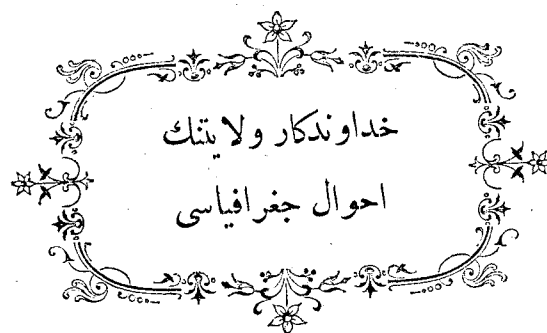 خداوندكار ولايتنك
احوال جغرافياسى